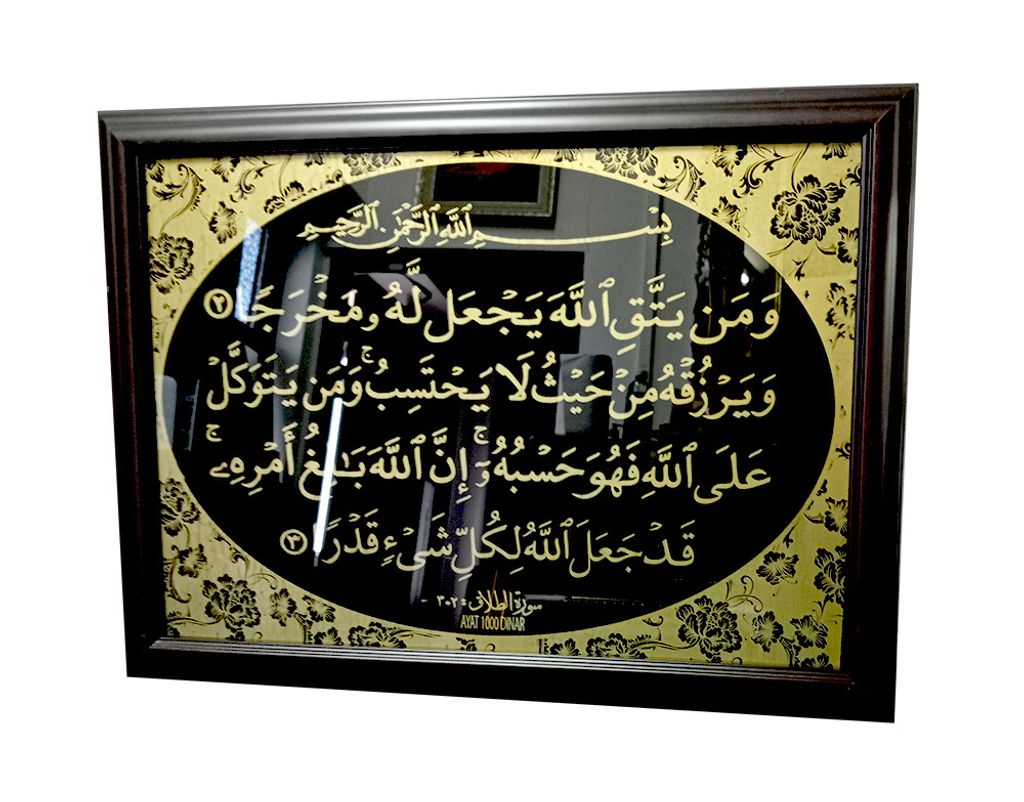 بِسْمِ ٱللَّهِ ٱلرَّحْمَٰنِ ٱلرَّحِيمِ
وَمَن يَتَّقِ ٱللَّهَ يَجْعَل لَّهُۥ مَخْرَجًا ٢
وَيَرْزُقْهُ مِنْ حَيْثُ لَا يَحْتَسِبُ ۚ وَمَن يَتَوَكَّلْ
عَلَى ٱللَّهِ فَهُوَ حَسْبُهُۥٓ ۚ إِنَّ ٱللَّهَ بَٰلِغُ أَمْرِهِۦ ۚ
قَدْ جَعَلَ ٱللَّهُ لِكُلِّ شَىْءٍ قَدْرًا ٣
سورة الطلاق : ٢٠٣
AYAT 1000 DINAR